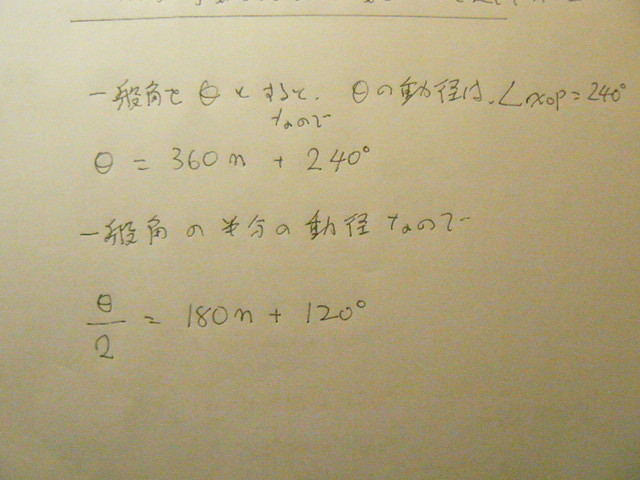 一般角をθとすると、θの動径は、∠xop=240°
なので
θ = 360n + 240°
一般角の半分の動径なので
θ/2 = 180n + 120°